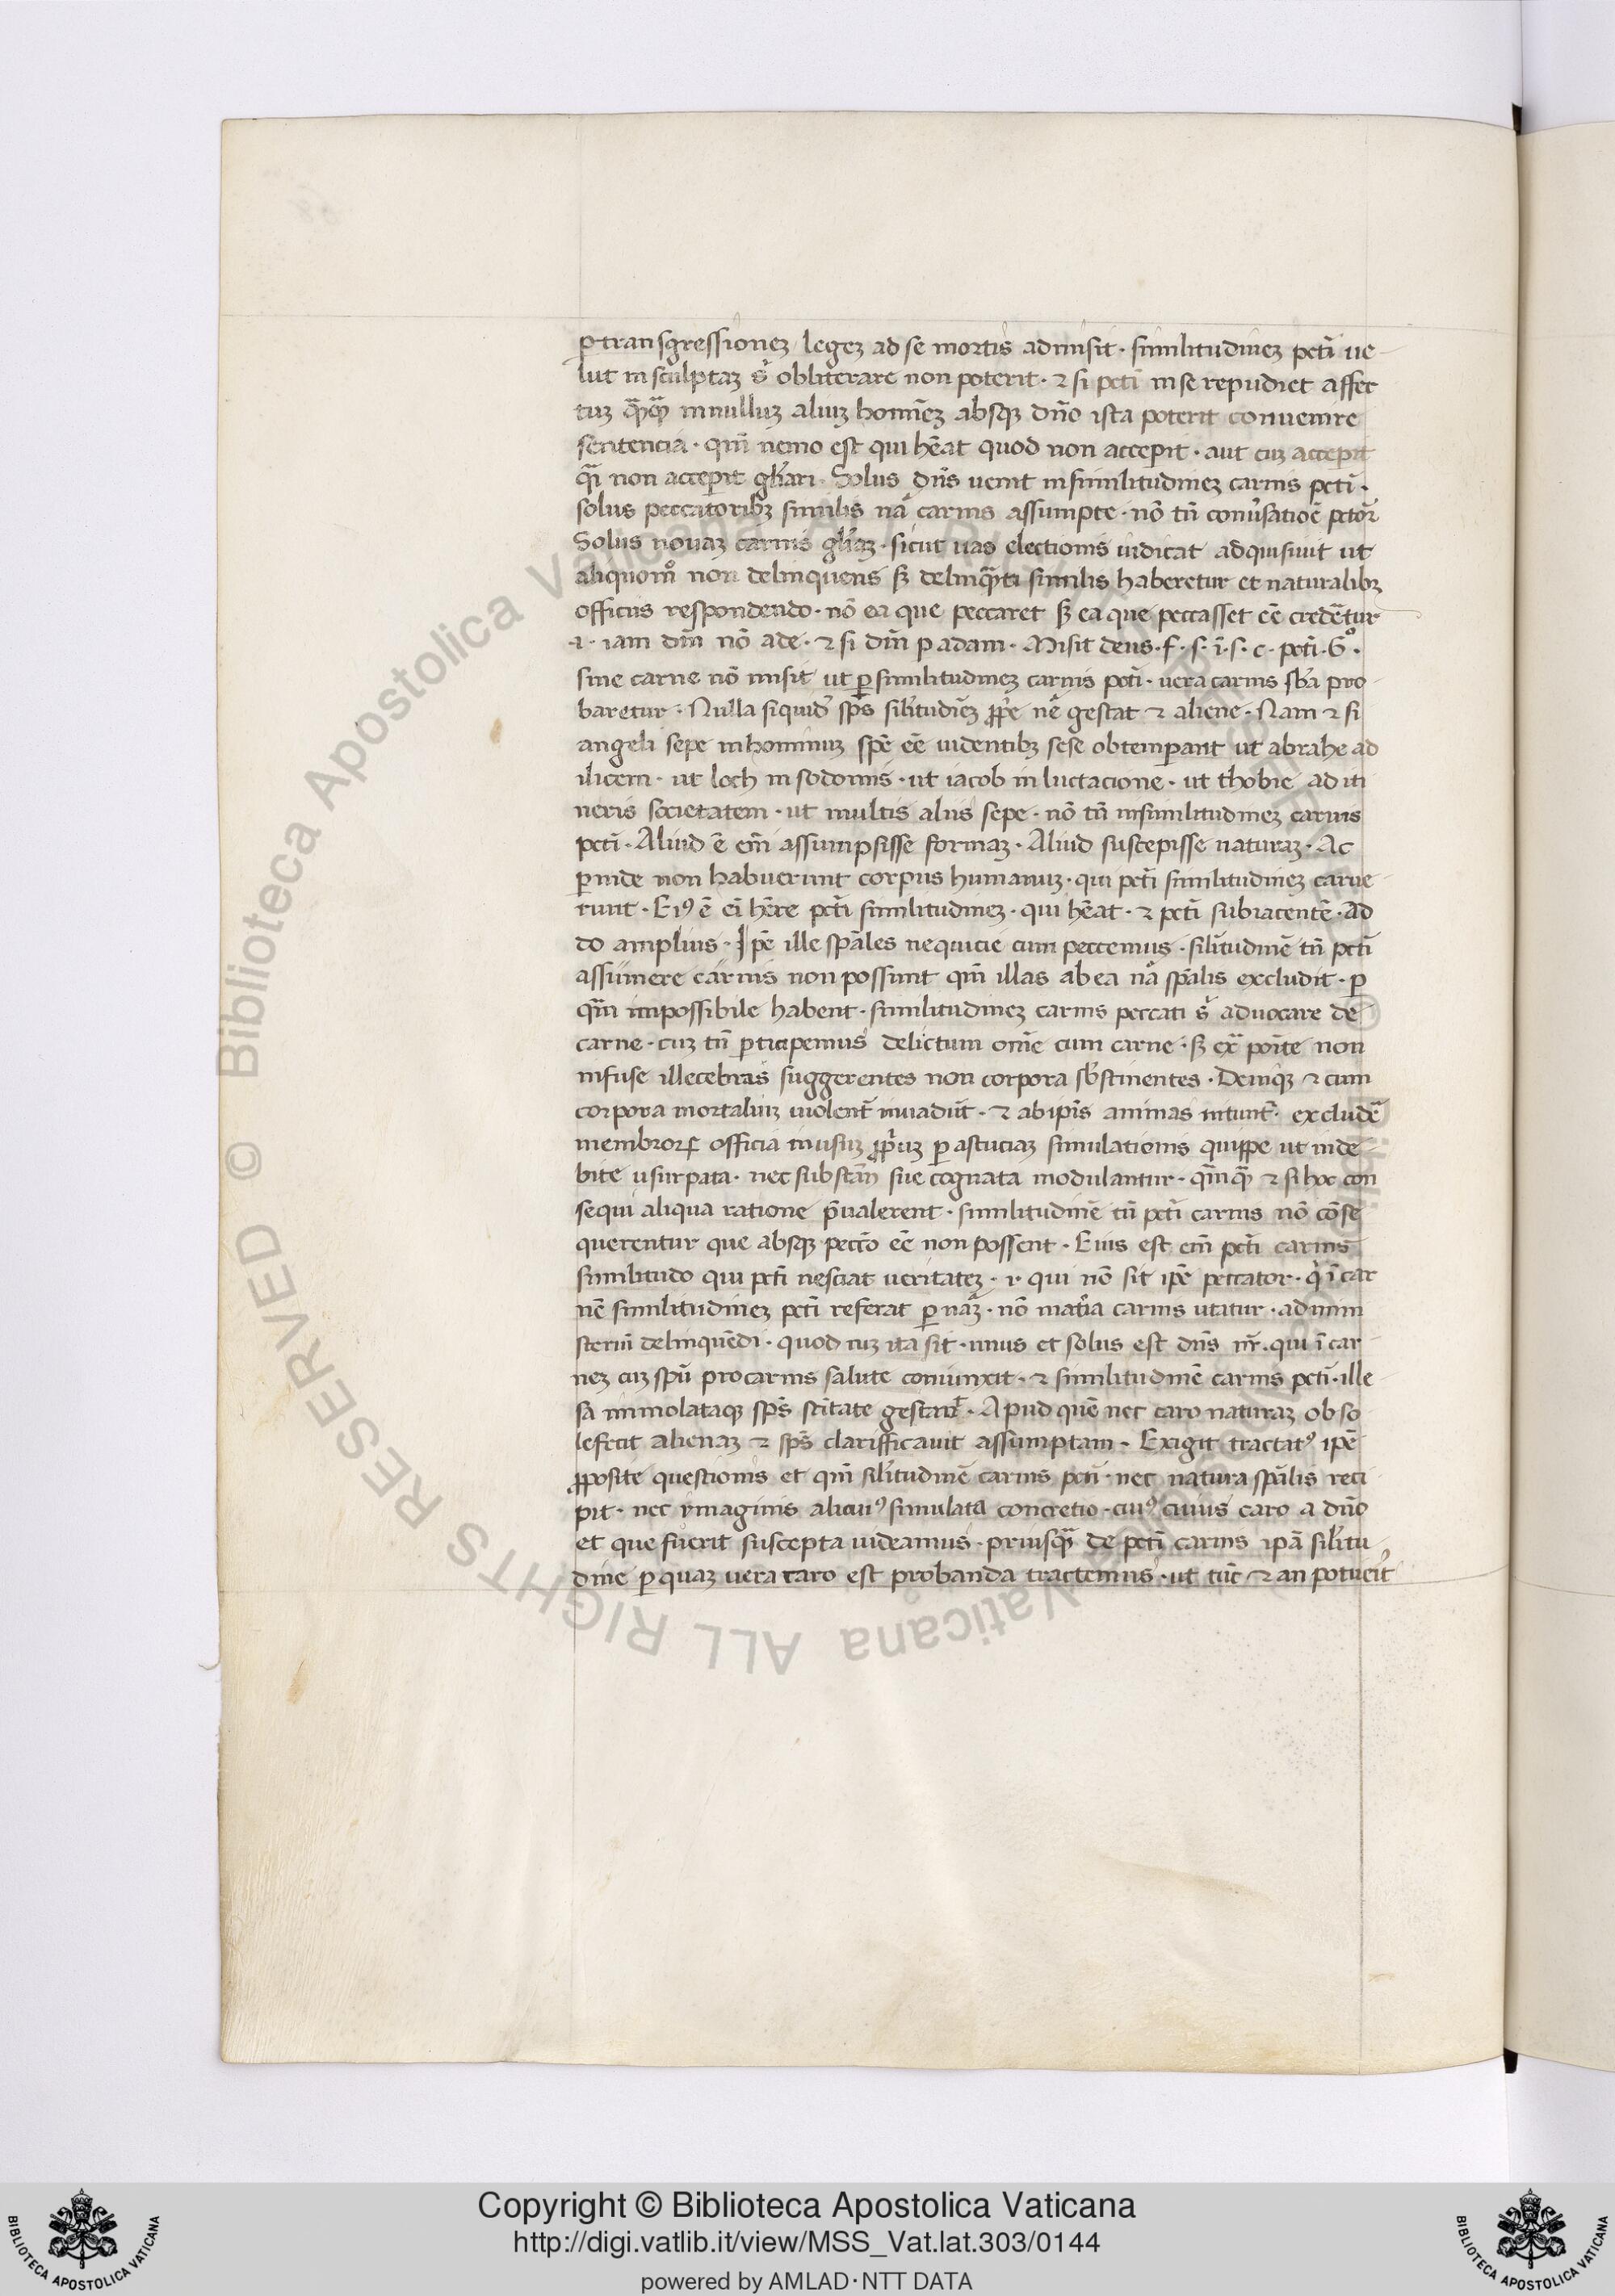 p transgressionez legez ad se mortis admisit · similitudinez pcti ue
lut insculptaz s obliterare non poterit · et si pcti in se repudiet affec
tuz qqz in nullum aliuz hominez absqz dno ista poterit conuenire
sentencia · qm nemo est qui heat quod non accepit · aut cuz accepit
qi non acceperit gliari · Solus dns uenit in similitudinez carnis pcti ·
solus peccatoribz similis na carnis assumpte · no tn conusatioe pctor
Solus nouaz carnis gliaz · sicut uas electionis iudicat adquisiuit ut
aliquomo non delinquens sz delinqnti similis haberetur et naturalibz
officiis respondendo · no ea que peccaret sz ea que peccasset ee credetur
·i· iam dm no ade · et si dm p adam · Misit deus · f · s · i · s · c · pcti · Go ·
sine carne no misit ut p similitudinez carnis pcti · uera carnis sba pro
baretur · Nulla siquid sps silitudiez ppe ne gestat et aliene · Nam et si
angeli sepe in hominuz spe ee uidentibz sese obtemperant ut abrahe ad
ilicem · ut loth in sodomis · ut iacob in luctacione · ut thobie ad iti
neris societatem · ut multis aliis sepe · no tn in similitudinez carnis
pcti · Aliud e em assumpsisse formaz · Aliud suscepisse naturaz · Ac
pinde non habuerunt corpus humanuz · qui pcti similitudinez carue
runt · Ei9 e ei here pcti similitudinez · qui heat · et pcti subiacente · Ad
do amplius · Ipe ille spales nequicie cum peccemus · silitudine tn pcti
assumere carnis non possunt qm illas ab ea na spalis excludit · p
qm impossibile habent · similitudinez carnis peccati s aduocare de
carne · cuz tn pticipemus delictum onie cum carne · sz ex pote non
infuse illecebras suggerentes non corpora sbstinentes · Deniqz et cum
corpora mortaliuz uiolent inuadut · et ab ipis animas nitunt · exclude
membror officia in usuz ppriuz p astuciaz simulationis quippe ut inde
bite usurpata · nec substan sue cognata modulantur · qmq et si hoc con
sequi aliqua ratione pualerent · similitudine tn pcti carnis no conse
querentur que absqz pecto ee non possent · Eius est em pcti carnis
similitudo qui pcti nesciat ueritatez · i· qui no sit ipe peccator · q i car
ne similitudinez pcti referat p naz · no matia carnis utatur · ad mini
steriu delinquedi · quod cuz ita sit · unus et solus est dns nr · qui i car
nez cuz spu pro carnis salute coniunxit · et similitudine carnis pcti · ille
sa immolataqz sps scitate gestaut · Apud que nec caro naturaz obso
lefecit alienaz et sps clarifficauit assumptam · Exigit tractat9 ipe
pposite questionis et qm silitudine carnis pcti · nec natura spalis reci
pit · nec ymaginis alicui9 simulata concretio · cui9 ciuius caro a dno
et que fuerit suscepta uideamus · priusq de pcti carnis ipa silitu
dine p quaz uera caro est probanda tractemus · ut tuc et an potueit
Copyright © Biblioteca Apostolica Vaticana
http://digi.vatlib.it/view/MSS_Vat.lat.303/0144
powered by AMLAD·NTT DATA
© Biblioteca Apostolica Vaticana ALL RIGHTS RESERVED
BIBLIOTECA APOSTOLICA VATICANA
BIBLIOTECA APOSTOLICA VATICANA